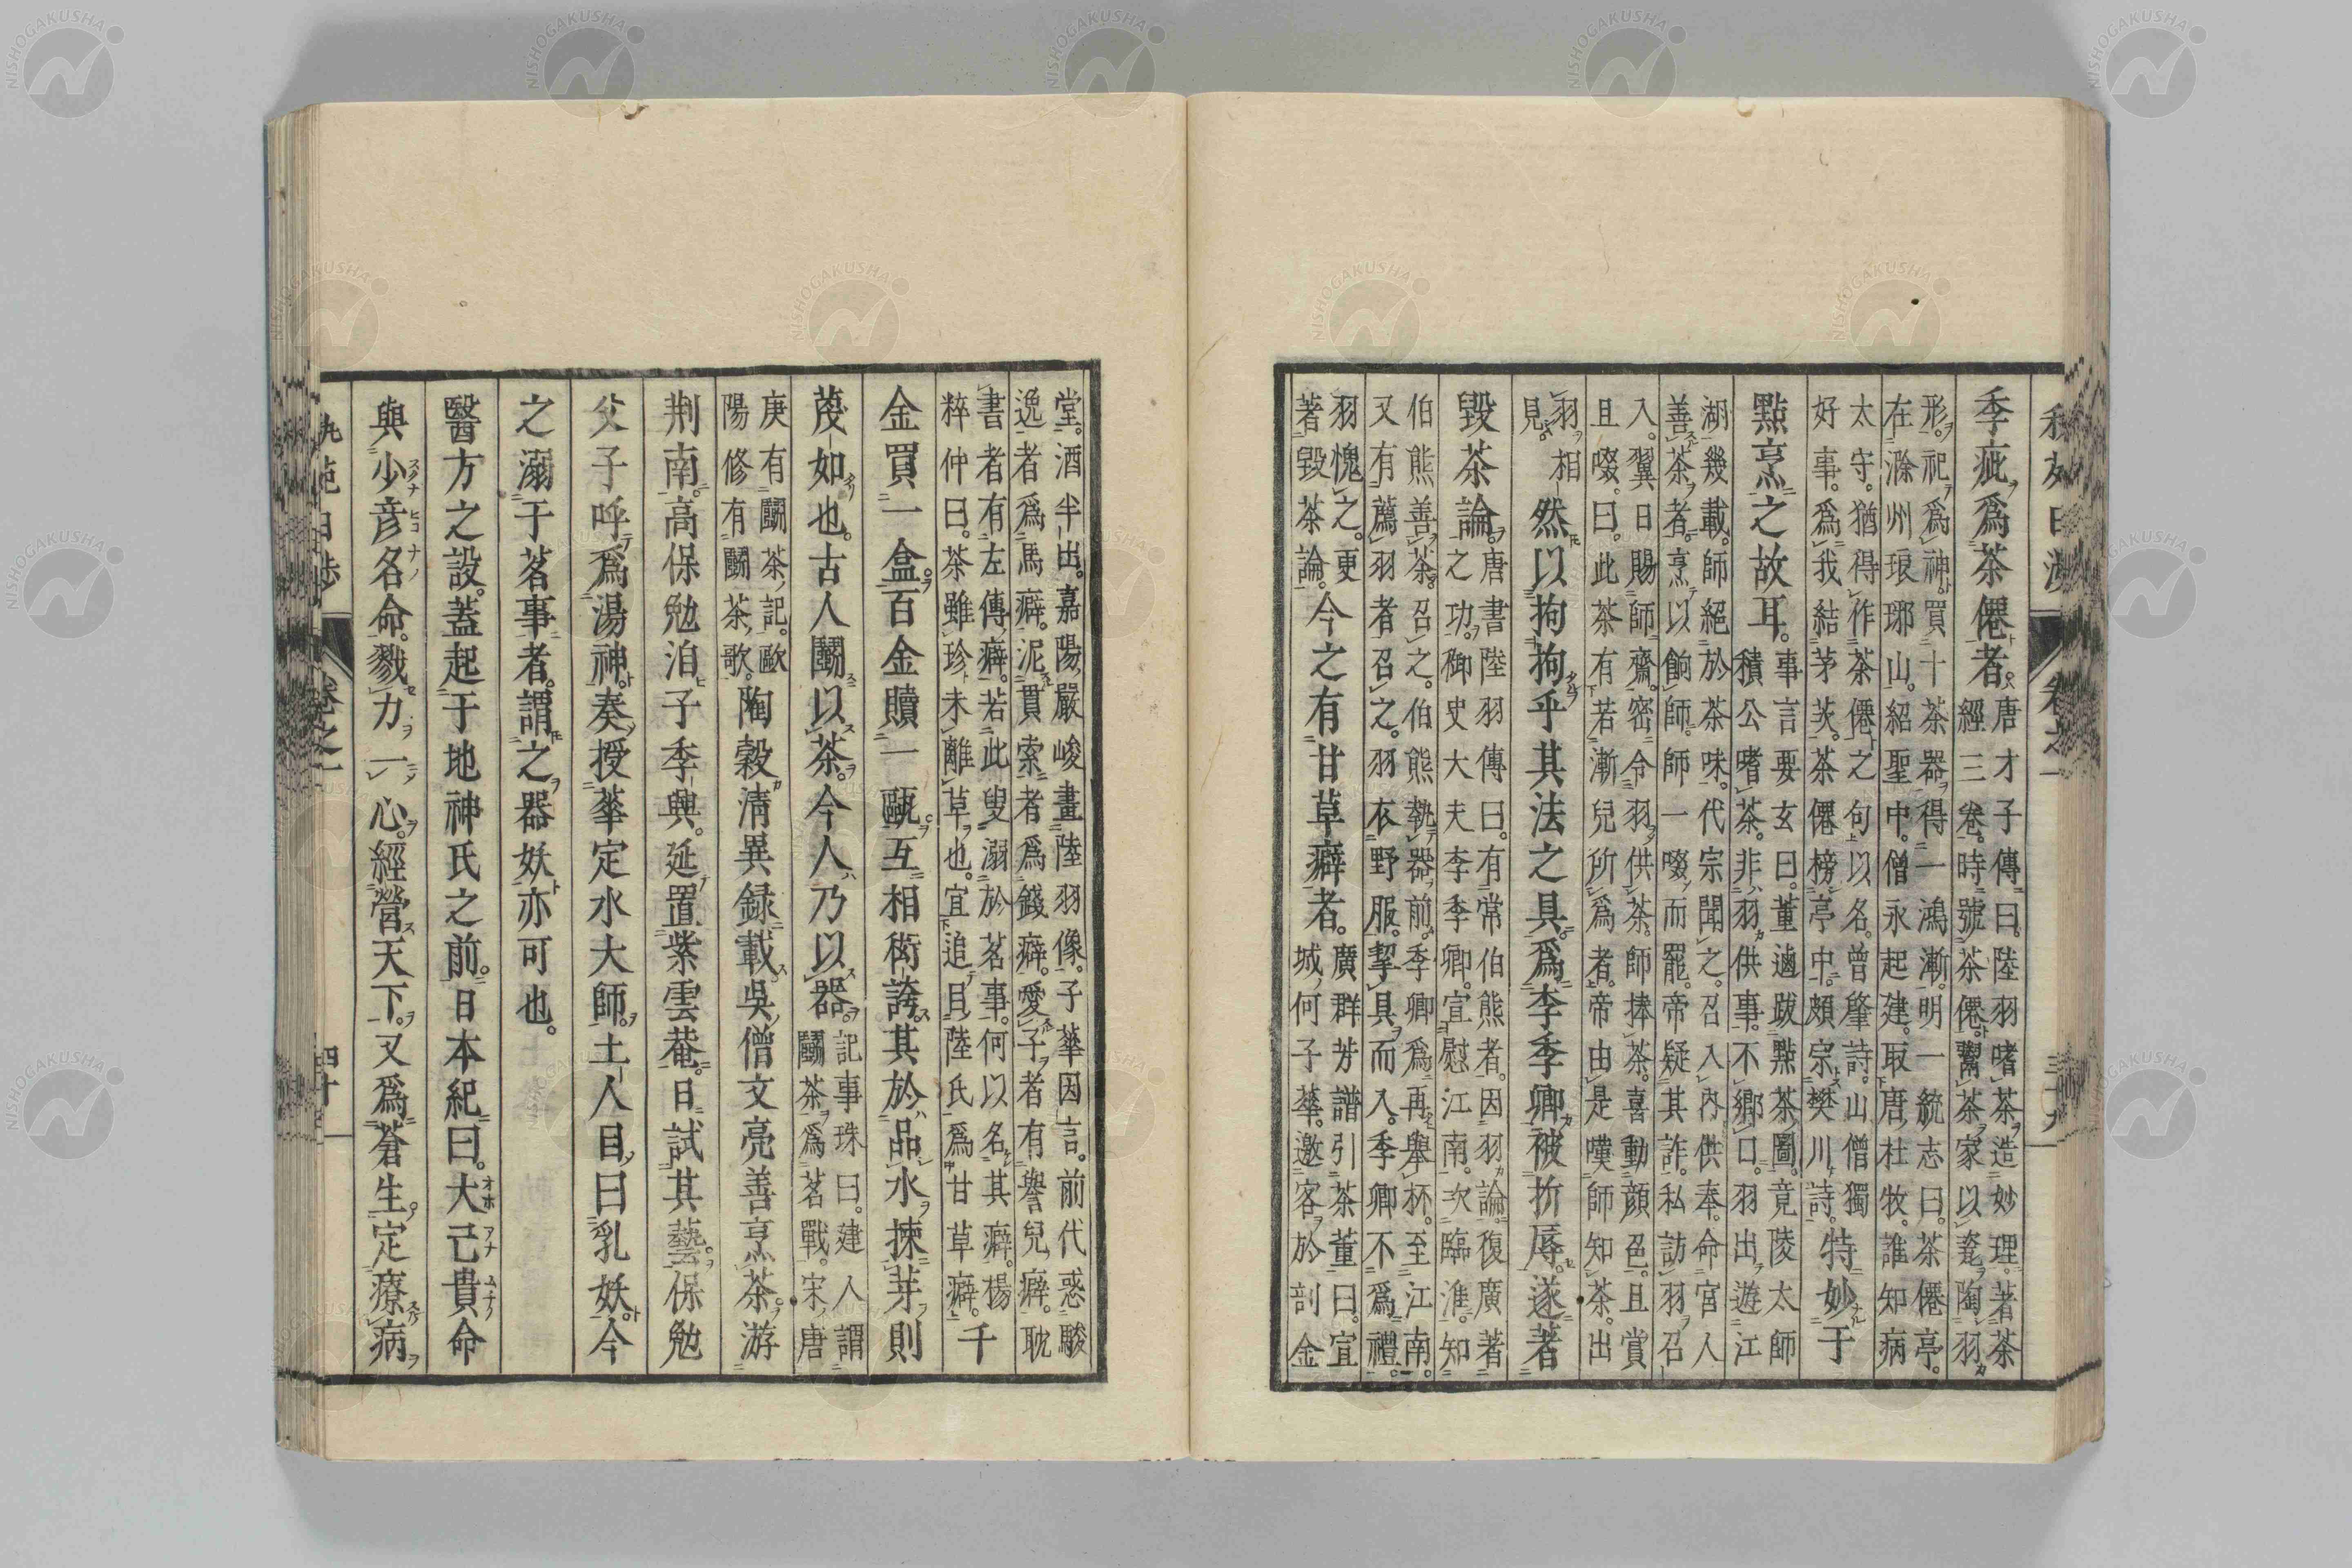 季疵爲茶僊者。唐才子傳曰。陸羽嗜茶。造妙理。著茶
經三卷。時號茶僊。鬻茶家以瓷陶羽
形。祀爲神。買十茶器。得一鴻漸。明一統志曰。茶僊亭。
在滁州琅琊山。紹聖中。僧永起建。取唐杜牧。誰知病
太守。猶得作茶僊之句以名。曾肇詩。山僧獨
好事。爲我結茅茨。茶僊榜亭中。頗宗樊川詩。特妙于
點烹之故耳。事言要玄曰。董逌跋點茶圖。竟陵太師
積公嗜茶。非羽供事。不鄉口。羽出遊江
湖幾載。師絕於茶味。代宗聞之。召入內供奉。命宮人
善茶者。烹以餉師。師一啜而罷。帝疑其詐。私訪羽召
入。翼日賜師齋。密令羽供茶。師捧茶。喜動顏色。且賞
且啜。曰。此茶有若漸兒所爲者。帝由是嘆師知茶。出
羽相
見。然以拘拘乎其法之具。爲李季卿被折辱。遂著
毀茶論。唐書陸羽傳曰。有常伯熊者。因羽論。復廣著
之功。御史大夫李季卿。宣慰江南。次臨淮。知
伯熊善茶。召之。伯熊執器前。季卿爲再舉杯。至江南。
又有薦羽者。召之。羽衣野服。挈具而入。季卿不爲禮。
羽愧之。更
著毀茶論。今之有甘草癖者。廣群芳譜引茶董曰。宣
城何子華。邀客於剖金
堂。酒半出。嘉陽嚴峻畫陸羽像。子華因言。前代惑駿
逸者爲馬癖。泥貫索者爲錢癖。愛子者有譽兒癖。耽
書者有左傳癖。若此叟溺於茗事。何以名其癖。楊
粹仲曰。茶雖珍。未離草也。宜追目陸氏爲甘草癖。千
金買一盒。百金贖一甌。互相衒誇。其於品水揀芽。則
蔑如也。古人鬭以茶。今人乃以器。記事珠曰。建人謂
鬭茶爲茗戰。宋唐
庚有鬭茶記。歐
陽修有鬭茶歌。陶穀清異録載。吳僧文亮善烹茶。游
荆南。高保勉洎子季興。延置紫雲菴。日試其藝。保勉
父子呼爲湯神。奏授華定水大師。土人目曰乳妖。今
之溺于茗事者。謂之器妖亦可也。
醫方之設。蓋起于地神氏之前。日本紀曰。大己貴命
與少彦名命。戮力一心。經營天下。又爲蒼生。定療病
卷之一
四十